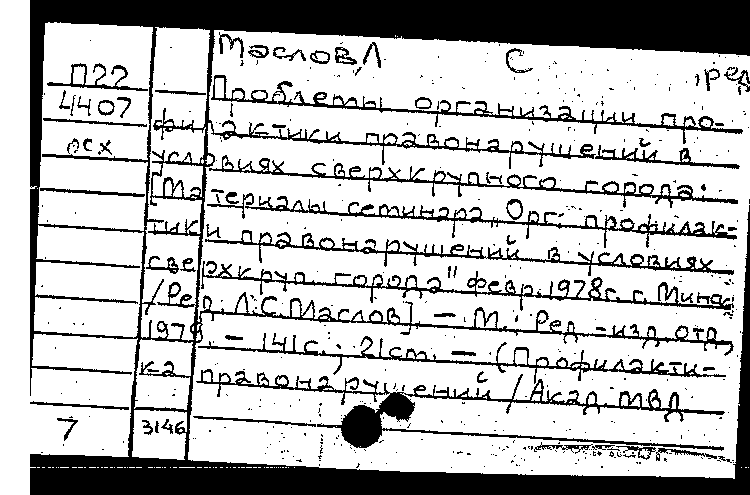 Маслов, Л С , ред
П22
4407
осх
Проблемы организации про-
филактики правонарушений в
условиях сверхкрупного города:
[Материалы семинара „Орг. профилак-
тики правонарушений в условиях
сверхкруп. города" февр. 1978г. г. Минск
/Ред. Л.С.Маслов]. – М.: Ред.-изд. отд,
1979. – 141с.; 21см. – (Профилакти-
ка правонарушений / Акад. МВД
7 3146